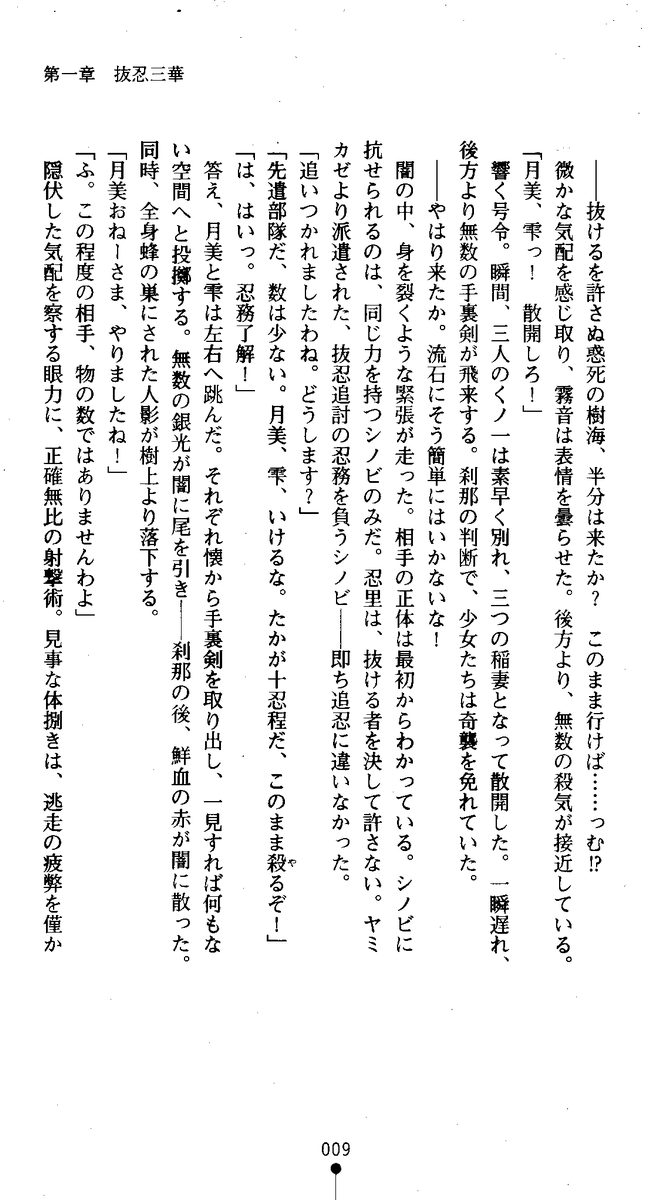 第一章　抜忍三華
――抜けるを許さぬ惑死の樹海、半分は来たか？　このまま行けば……っむ!?
微かな気配を感じ取り、霧音は表情を曇らせた。後方より、無数の殺気が接近している。
「月美、雫っ！　散開しろ！」
響く号令。瞬間、三人のくノ一は素早く別れ、三つの稲妻となって散開した。一瞬遅れ、
後方より無数の手裏剣が飛来する。刹那の判断で、少女たちは奇襲を免れていた。
――やはり来たか。流石にそう簡単にはいかないな！
闇の中、身を裂くような緊張が走った。相手の正体は最初からわかっている。シノビに
抗せられるのは、同じ力を持つシノビのみだ。忍里は、抜ける者を決して許さない。ヤミ
カゼより派遣された、抜忍追討の忍務を負うシノビ――即ち追忍に違いなかった。
「追いつかれましたわね。どうします？」
「先遣部隊だ、数は少ない。月美、雫、いけるな。たかが十忍程だ、このまま殺るぞ！」
や
「は、はいっ。忍務了解！」
答え、月美と雫は左右へ跳んだ。それぞれ懐から手裏剣を取り出し、一見すれば何もな
い空間へと投擲する。無数の銀光が闇に尾を引き――刹那の後、鮮血の赤が闇に散った。
同時、全身蜂の巣にされた人影が樹上より落下する。
「月美おねーさま、やりましたね！」
「ふ。この程度の相手、物の数ではありませんわよ」
隠伏した気配を察する眼力に、正確無比の射撃術。見事な体捌きは、逃走の疲弊を僅か
009